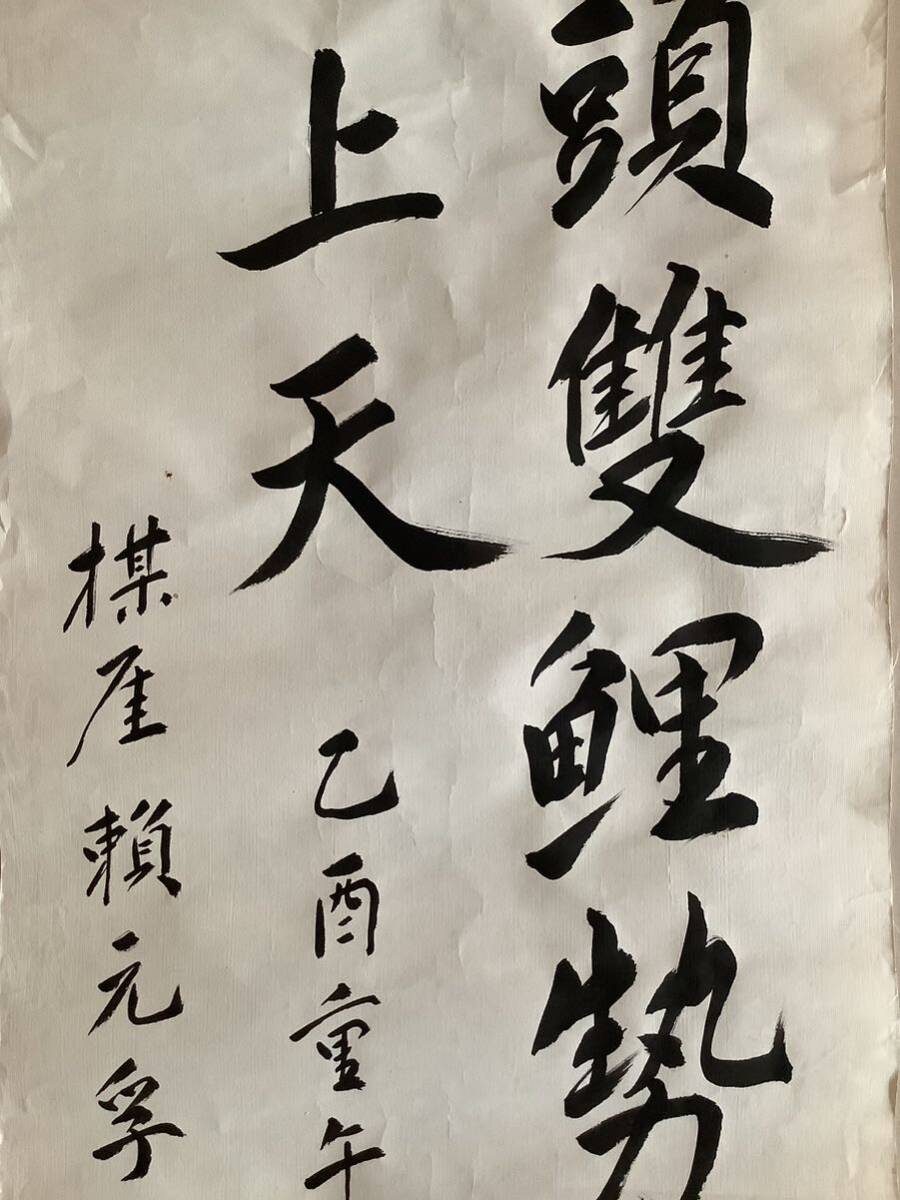 頭雙鯉勢
上天
乙酉重午
楳厓賴元孚